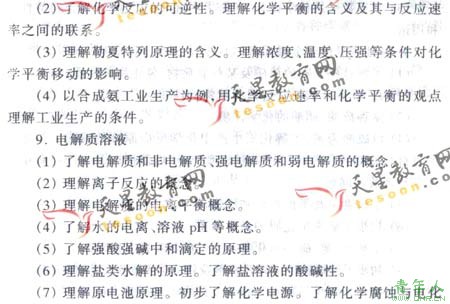 (2) 了解化学反应的可逆性。理解化学平衡的含义及其与反应速
率之间的联系。
(3) 理解勒夏特列原理的含义。理解浓度、温度、压强等条件对化
学平衡移动的影响。
(4) 以合成氨工业生产为例,用化学反应速率和化学平衡的观点
理解工业生产的条件。
9. 电解质溶液
(1) 了解电解质和非电解质、强电解质和弱电解质的概念。
(2) 理解离子反应的概念。
(3) 理解电解质的电离平衡概念。
(4) 了解水的电离、溶液 pH 等概念。
(5) 了解强酸强碱中和滴定的原理。
(6) 理解盐类水解的原理。了解盐溶液的酸碱性。
(7) 理解原电池原理。初步了解化学电源。了解化学腐蚀与电化
天星教育网
tesoon.com
天星教育网
tesoon.com
天星教育网
tesoon.com
天星教育网
tesoon.com
青年人